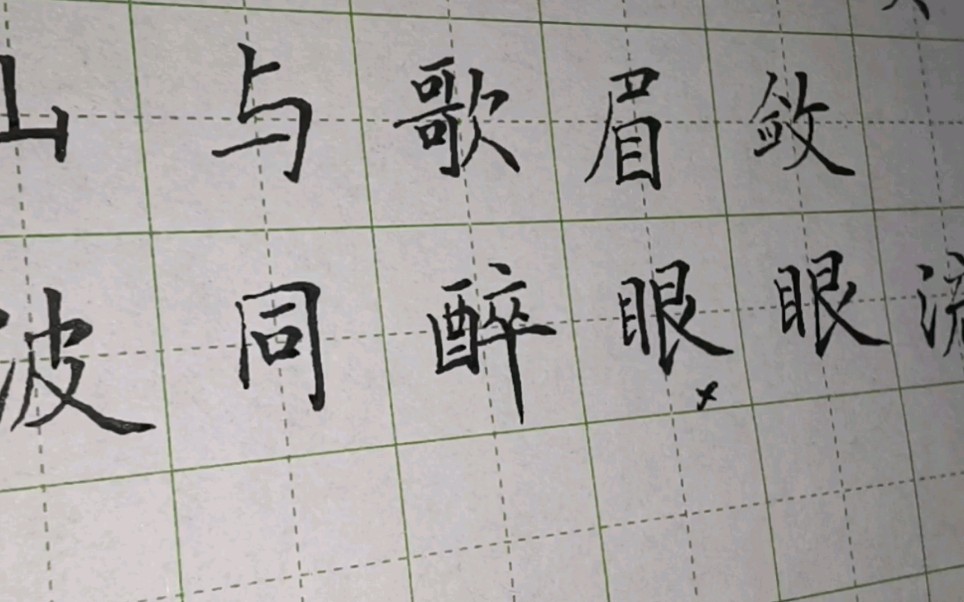 山与歌眉敛
波同醉眼眼流